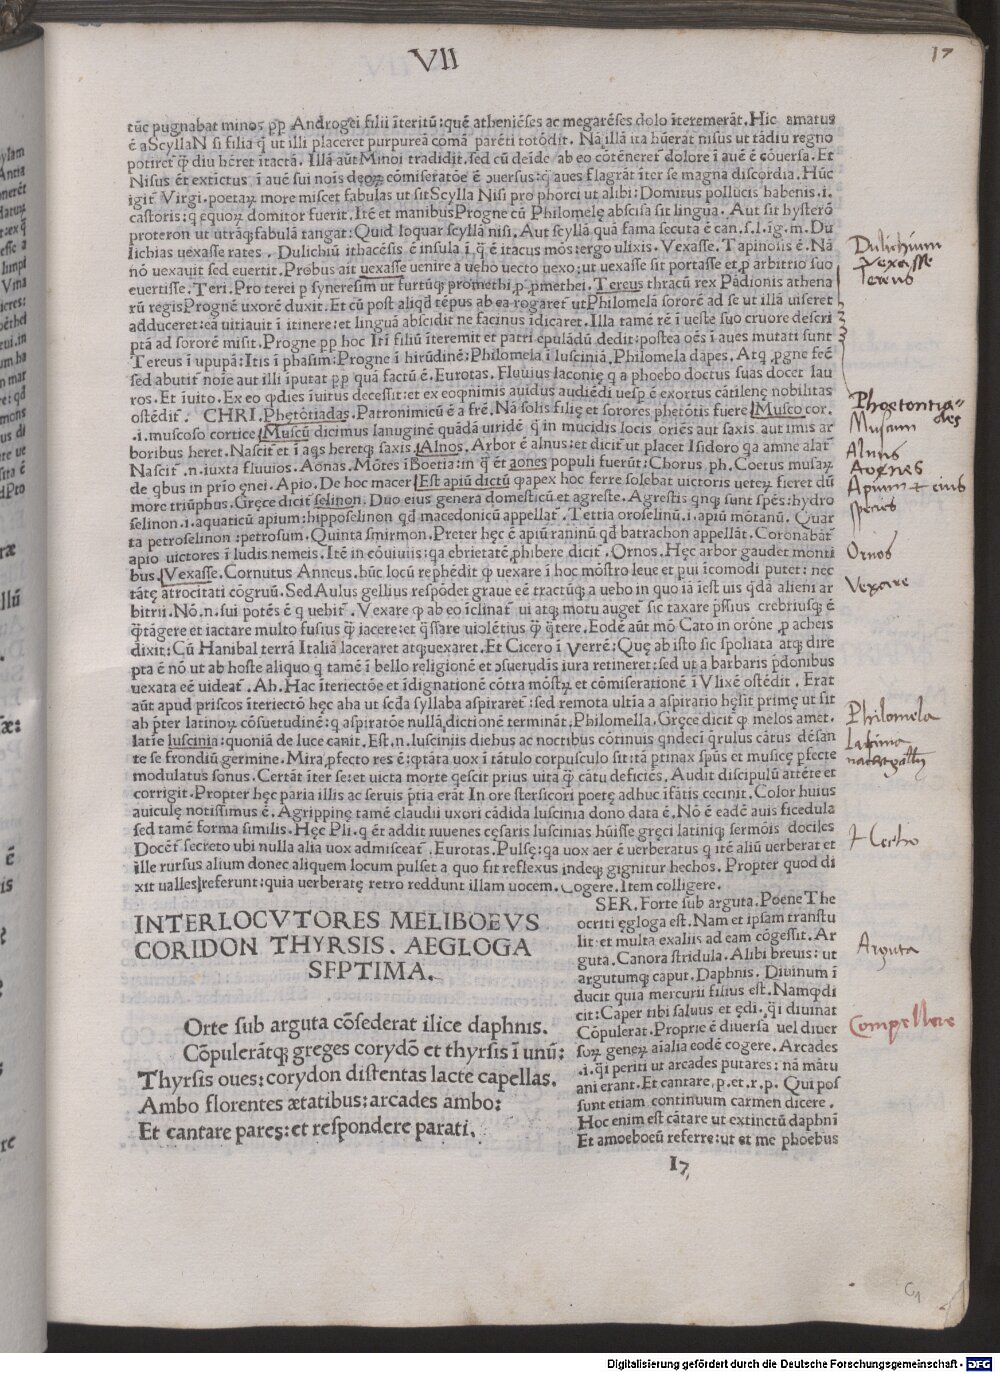 VII
17
tūc pugnabat minos ꝓp Androgei filii īteritū: quē atheniēses ac megarēses dolo īteremerāt. Hic amatus
ē a ScyllaN si filia q̄ ut illi placeret purpureā comā parēti totōdit. Nā illā ita hūerat nisus ut tādiu regno
potiret̄ q̄ diu hēret ītactā. Illā aūt Minoi tradidit. sed cū deīde ab eo cōtēneret̄ dolore ī auē ē cōuersa. Et
Nisus ēt extictus ī auē sui nois deoꝝ cōmiseratōe ē ɔuersus: q̄ aues flagrāt īter se magna discordia. Hūc
igit̄ Virgi. poetaꝝ more miscet fabulas ut sit Scylla Nisi pro phorci ut alibi: Domitus pollucis habenis .i.
castoris: q̄ equoꝝ domitor fuerit. Itē et manibus Progne cū Philomelę abscisa sit lingua. Aut sit hysterō
proteron ut utrāq; fabulā tangat: Quid loquar scyllā nisi, Aut scyllā quā fama secuta ē can. s. l. ig. m. Du
lichias uexasse rates. Dulichiū ithacēsis ē insula ī q̄ ē itacus mōs: ergo ulixis. Vexasse. Tapinosis ē. Nā
nō uexauit sed euertit. Probus ait uexasse uenire a ueho uecto uexo: ut uexasse sit portasse et ꝑ arbitrio suo
euertisse. Teri. Pro terei ꝑ syneresim ut furtūq; promethi, ꝓ. ꝓmethei. Tereus thracū rex Pādionis athena
rū regis Prognē uxorē duxit. Et cū post aliqd̄ tēpus ab ea rogaret̄ ut Philomelā sororē ad se ut illā uiseret
adduceret: eā uitiauit ī itinere: et linguā abscidit ne facinus īdicaret. Illa tamē rē ī ueste suo cruore descri
ptā ad sororē misit. Progne ꝓp hoc Itī filiū īteremit et patri epulādū dedit: postea oēs ī aues mutati sunt
Tereus ī upupā: Itis ī phasim: Progne ī hirūdinē: Philomela ī lusciniā. Philomela dapes. Atq, ꝓgne fec̄
sed abutit̄ noīe aut illi īputat ꝓp quā factū ē. Eurotas. Fluuius laconię q̄ a phoebo doctus suas docet lau
ros. Et iuito. Ex eo q̄dies īuitus decessit: et ex eoq̄nimis auidus audiēdi uesꝑ ē exortus cātilenę nobilitas
ostēdit̄. CHRI. Phętōtiadas. Patronimicū ē a frē. Nā solis filię et sorores phetōtis fuere Musco cor.
.i. muscoso cortice Muscū dicimus lanuginē quādā uiridē q̄ in mucidis locis oriēs aut saxis aut imis ar
boribus heret. Nascit̄ et ī aqs heretq; saxis. Alnos. Arbor ē alnus: et dicit̄ ut placet Isidoro q̄a amne alat̄
Nascit̄ .n. iuxta fluuios. Aonas. Mōtes ī Boetia: in q̄ ēt aones populi fuerūt: Chorus ph. Coetus musaꝝ
de qbus in prio ęnei. Apio. De hoc macer Est apiū dictū q̄ apex hoc ferre solebat uictoris ueteꝝ fieret dū
more triūphus. Gręce dicit̄ selinon. Duo eius genera domesticū et agreste. Agrestis qnq; sunt spēs: hydro
selinon .i. aquaticū apium: hipposelinon qd̄ macedonicū appellat̄. Tertia oroselinū .i. apiū mōtanū. Quar
ta petroselinon: petrosum. Quinta smirmon. Preter hęc ē apiū raninū qd̄ batrachon appellāt. Coronabāt̄
apio uictores ī ludis nemeis. Itē in cōuiuiis: q̄a ebrietatē ꝓhibere dicit̄. Ornos. Hęc arbor gaudet monti
bus. Vexasse. Cornutus Anneus. hūc locū rephēdit q̄ uexare ī hoc mōstro leue et pui īcomodi putet: nec
tātę atrocitati cōgruū. Sed Aulus gellius respōdet graue eē tractūq; a ueho in quo iā iest uis qdā alieni ar
bitrii. Nō .n. sui potēs ē q uehit̄. Vexare q̄ ab eo īclinat̄ ui atq; motu auget̄ sic taxare pssius crebriusq; ē
q̄ tāgere et iactare multo fusius q̄ iacere: et q̄ssare uiolētius q̄ q̄tere. Eodē aūt mō Cato in orōne ꝓ acheis
dixit: Cū Hanibal terrā Italiā laceraret atq; uexaret. Et Cicero ī Verrē: Quę ab isto sic spoliata atq; dire
pta ē nō ut ab hoste aliquo q tamē ī bello religionē et ɔsuetudīs iura retineret: sed ut a barbaris p̄donibus
uexata eē uideat̄. Ah. Hac īteriectōe et īdignationē cōtra mōstꝝ et cōmiserationē ī Vlixē ostēdit. Erat
aūt apud priscos īteriectō hęc aha ut scd̄a syllaba aspiraret̄: sed remota ultīa a aspiratio hęsit primę ut sit
ah p̄ter latinoꝝ cōsuetudinē: q̄ aspiratōe nullā dictionē termināt. Philomella. Gręce dicit̄ q̄ melos amet.
latīe luscinia: quoniā de luce canit. Est .n. lusciniis diebus ac noctibus cōtinuis qndeci q̄rulus cātus dēsan
te se frondiū germine. Mira ꝓfecto res ē: q̄tāta uox ī tātulo corpusculo sit itā ptinax spūs et musicę pfecte
modulatus sonus. Certāt īter se: et uicta morte q̄escit prius uita q̄ cātu deficiēs. Audit discipulū attēte et
corrigit. Propter hęc paria illis ac seruis p̄tia erāt In ore stersicori poetę adhuc īfātis cecinit. Color huius
auiculę notissimus ē. Agrippinę tamē claudii uxori cādida luscinia dono data ē. Nō ē eadē auis ficedula
sed tamē forma similis. Hęc Pli. q ēt addit iuuenes cęsaris luscinias hūisse gręci latiniq; sermōis dociles
Docēt̄ secreto ubi nulla alia uox admisceat̄. Eurotas. Pulsę: q̄a uox aer ē uerberatus q itē aliū uerberat et
ille rursus alium donec aliquem locum pulset a quo fit reflexus indeq; gignitur hechos. Propter quod di
xit ualles referunt: quia uerberatę retro reddunt illam uocem. Cogere. Item colligere.
Dulichium
Vexasse
Tereus
Phoetontia=
des
Muscum
Alnus
Aognes
Apium et eius
species
Ornos
Vexare
Philomela
latima
nachtgall
Arguta
Compellere
INTERLOCVTORES MELIBOEVS
CORIDON THYRSIS. AEGLOGA
SEPTIMA.
Orte sub arguta cōsederat ilice daphnis.
Cōpulerātq; greges corydō et thyrsis ī unū:
Thyrsis oues: corydon distentas lacte capellas.
Ambo florentes ætatibus: arcades ambo:
Et cantare pares: et respondere parati.
SER. Forte sub arguta. Poene The
ocriti ęgloga est. Nam et ipsam transtu
lit et multa exaliis ad eam cōgessit. Ar
guta. Canora stridula. Alibi breuis: ut
argutumq; caput. Daphnis. Diuinum ī
ducit quia mercurii filius est. Namq; di
cit: Caper tibi saluus et ędi. q̄i diuinat
Cōpulerat. Proprie ē diuersa uel diuer
soꝝ geneꝝ aīalia eodē cogere. Arcades
.i. q̄i periti ut arcades putares: nā mātu
ani erant. Et cantare. p. et. r. p. Qui pos
sunt etiam continuum carmen dicere.
Hoc enim est cātare ut extinctū daphnī
Et amoeboeū referre: ut et me phoebus
17
G1
Digitalisierung gefördert durch die Deutsche Forschungsgemeinschaft - DFG